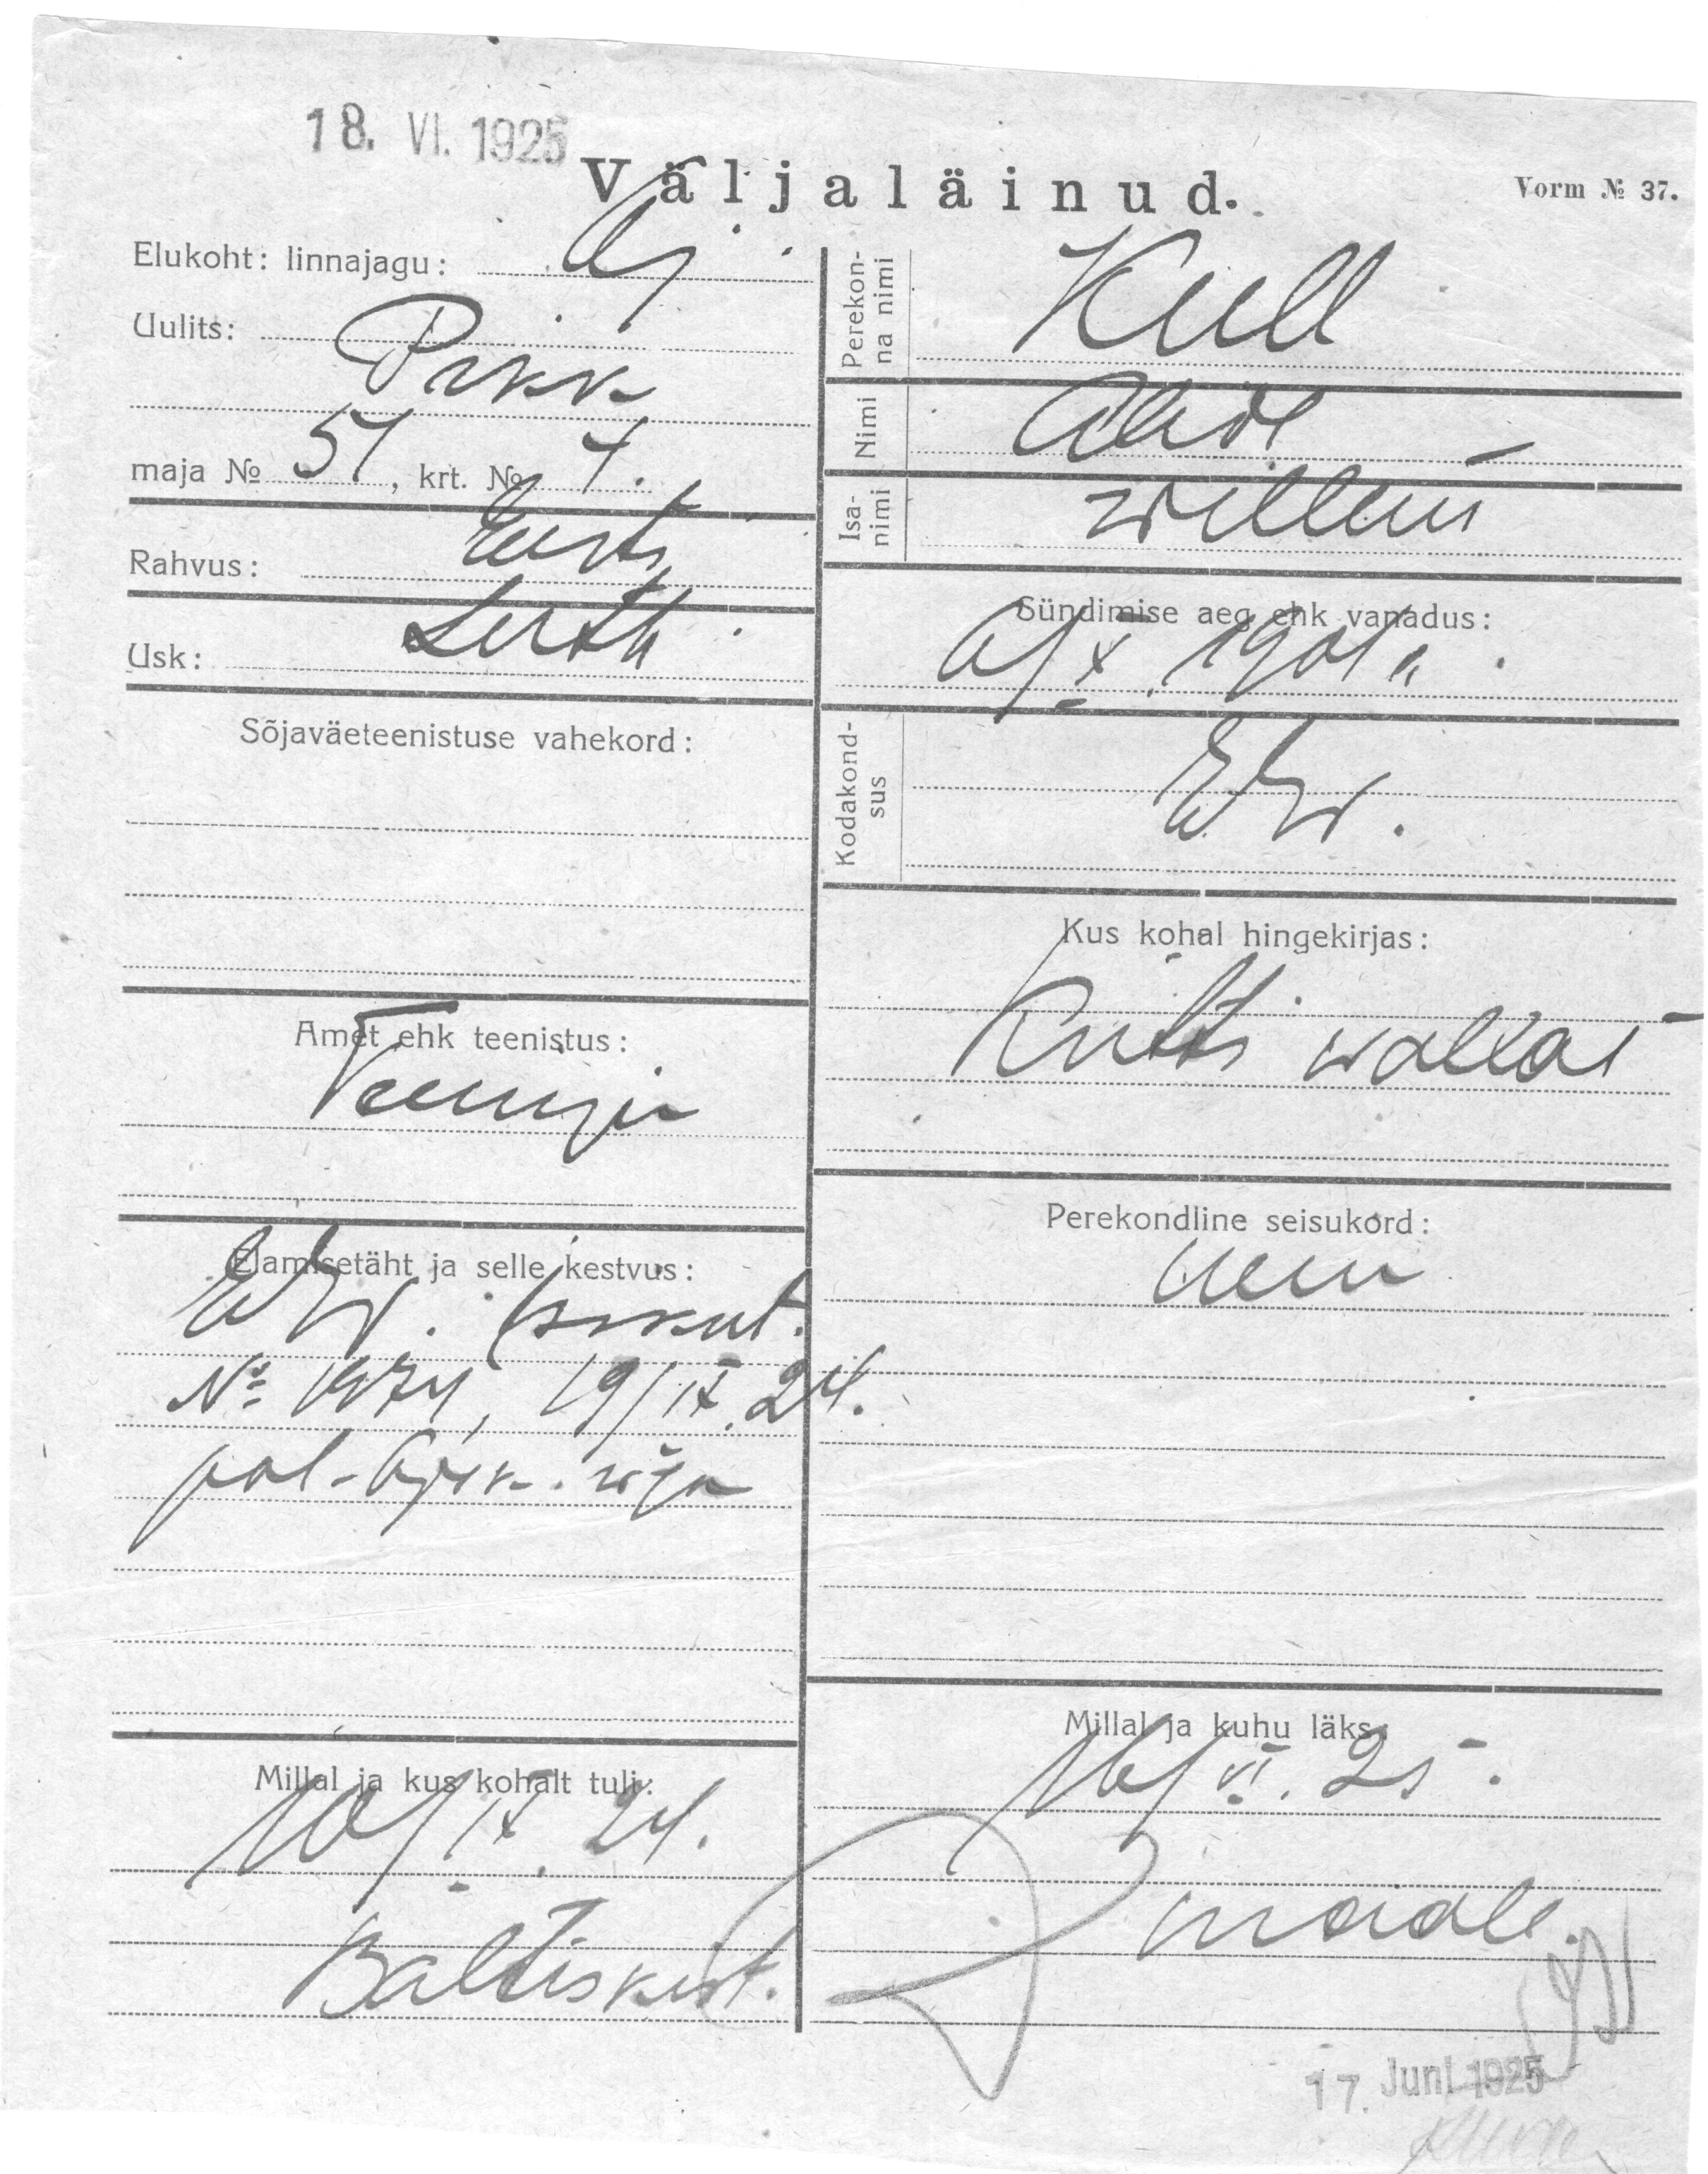 18. VI. 1925
Väljaläinud.
Vorm № 37.
Elukoht: linnajagu:
Uulits: Pikk
maja № 51, krt. № 4.
Rahvus: Eesti
Usk: Luth
Sõjaväeteenistuse vahekord:
Amet ehk teenistus:
Teenija
Elamisetäht ja selle kestvus:
EW. isikut.
№ 1974, 19/IX.24.
Millal ja kus kohalt tuli:
10/IX.24.
Baltiskist.
Perekonna nimi Kull
Nimi
Isanimi Willem
Sündimise aeg ehk vanadus:
Kodakondsus EW.
Kus kohal hingekirjas:
wallas
Perekondline seisukord:
Millal ja kuhu läks:
16/VI.25.
maale.
17. Juni 1925